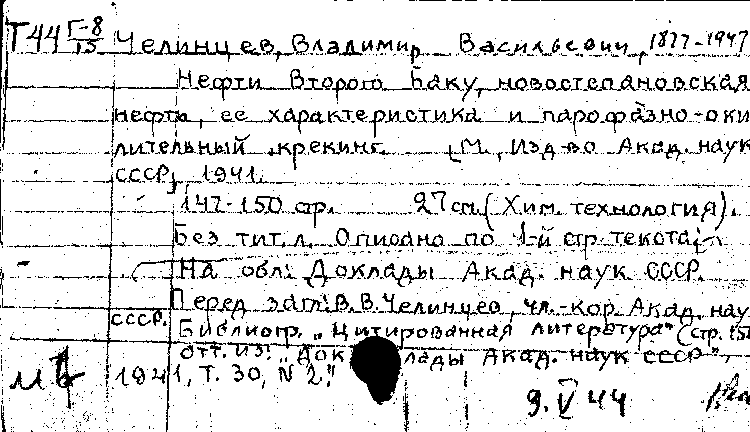 Т44 Г-8/15 Челинцев, Владимир Васильевич, 1877-1947
Нефти Второго Баку, новостепановская
нефть, ее характеристика и парофазно-оки
лительный крекинг. [М., Изд-во Акад. наук
СССР, 1941.
147-150 стр. 27 см. (Хим. технология).
Без тит. л. Описано по 1-й стр. текста.
На обл.: Доклады Акад. наук СССР.
Перед загл.: В.В. Челинцев, чл.-кор. Акад. нау
СССР.
Библиогр. "Цитированная литература" (стр. 150
Отт. из: "Доклады Акад. наук СССР",
1941, Т. 30, N 2."
9.V 44